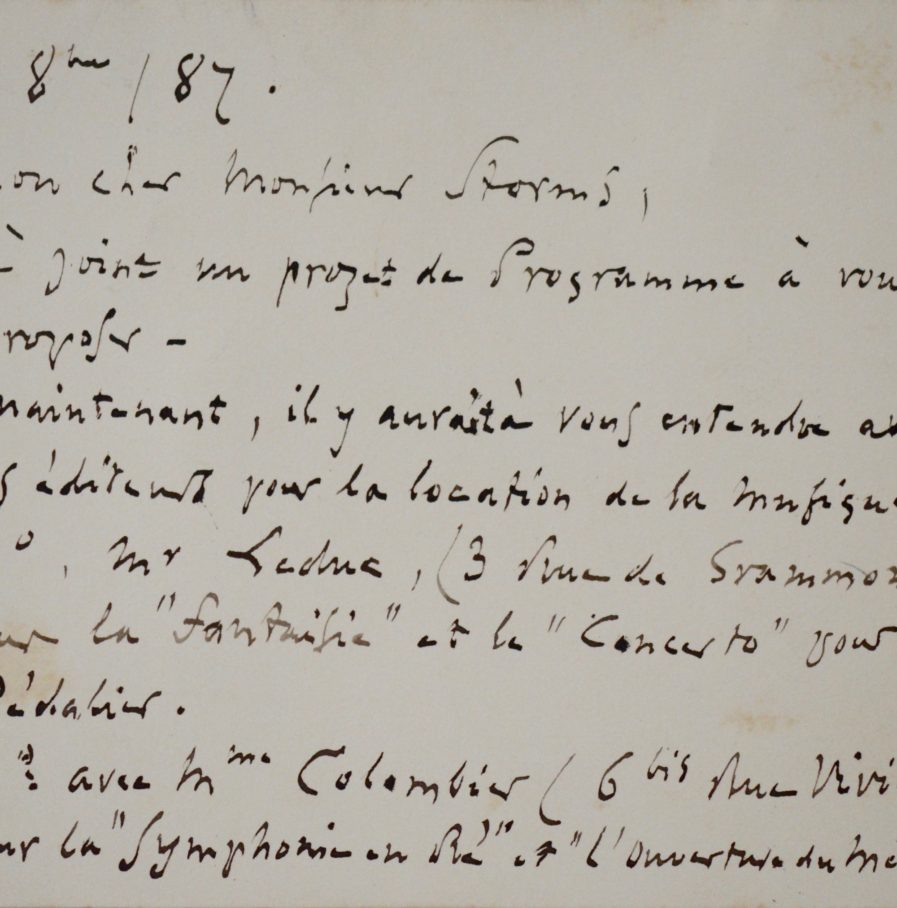 8bre / 87.
on cher Monsieur Storms,
à joint un projet de Programme à vou
roposer -
maintenant, il y aurait à vous entendre av
s éditeurs pour la location de la musique
o, Mr Leduc, (3 Rue de Grammon
ur la "Fantaisie" et le "Concerto" pour
Pédalier.
avec Mme Colombier (6 bis Rue Vivi
ur la "Symphonie en Ré" et "l'Ouverture du Mé